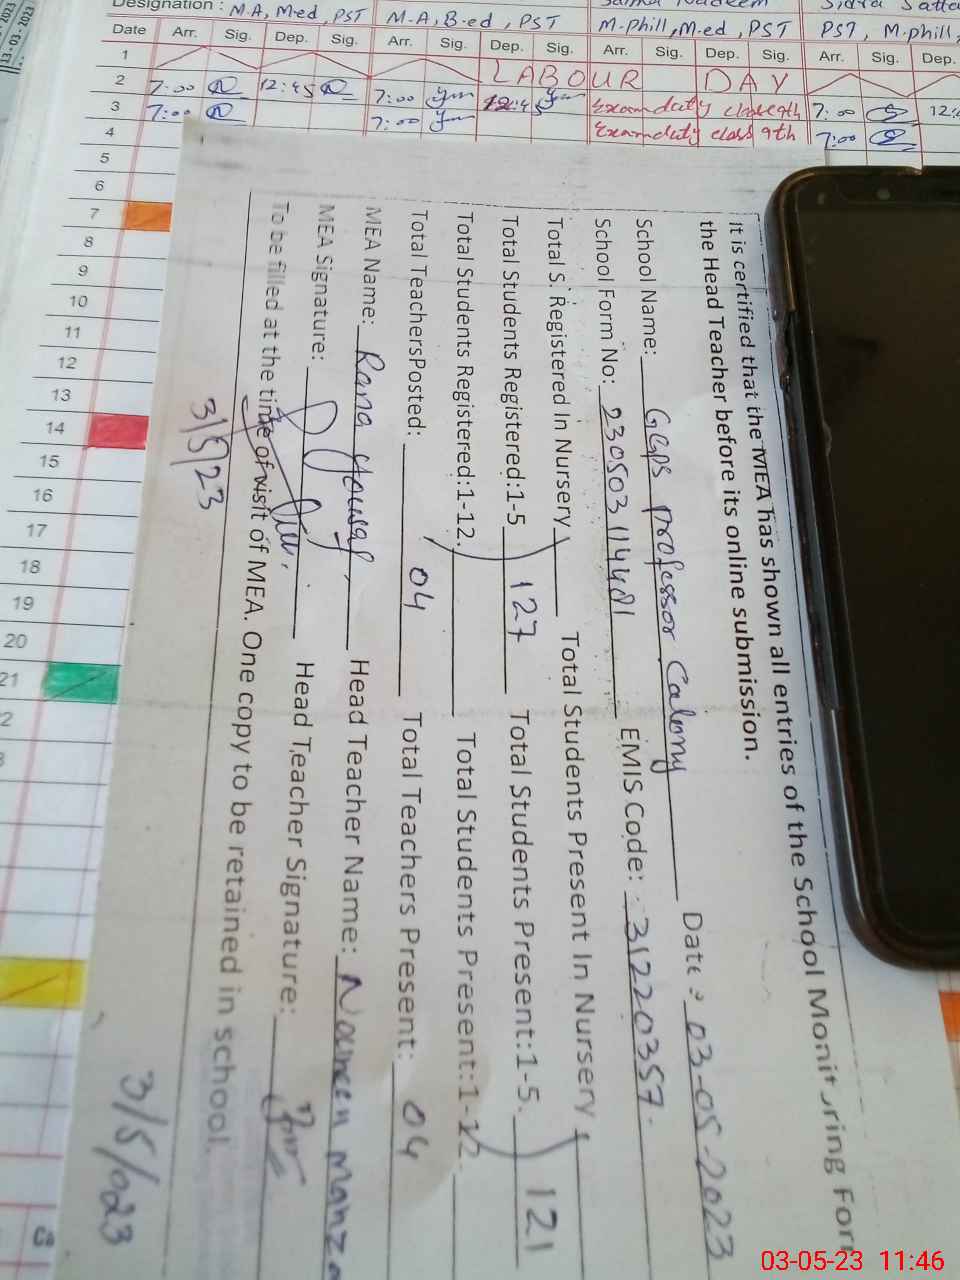 Designation : M.A, M.ed, PST M.A, B.ed, PST M.phill, M.ed, PST PST, M.phill,
Date Arr. Sig. Dep. Sig. Arr. Sig. Dep. Sig. Arr. Sig. Dep. Sig. Arr. Sig. Dep.
1 LABOUR DAY
2 7:00 12:45 7:00 12:45 Exam duty class 9th 7:00
3 7:00 7:00 Exam duty class 9th 7:00
4
5
6
7
8
9
10
11
12
13
14
15
16
17
18
19
20
21
School Monitoring Form
It is certified that the MEA has shown all entries of the
the Head Teacher before its online submission.
School Name: GGPS Professor Calony Date: 03-05-2023
School Form No: 230503114481 EMIS Code: 31220357.
Total S. Registered In Nursery Total Students Present In Nursery
Total Students Registered:1-5 127 Total Students Present:1-5. 121
Total Students Registered:1-12. Total Students Present:1-12.
Total TeachersPosted: 04 Total Teachers Present: 04
MEA Name: Rana Head Teacher Name:
MEA Signature: Head Teacher Signature:
To be filled at the time of visit of MEA. One copy to be retained in school.
3/5/23
3/5/023
03-05-23 11:46